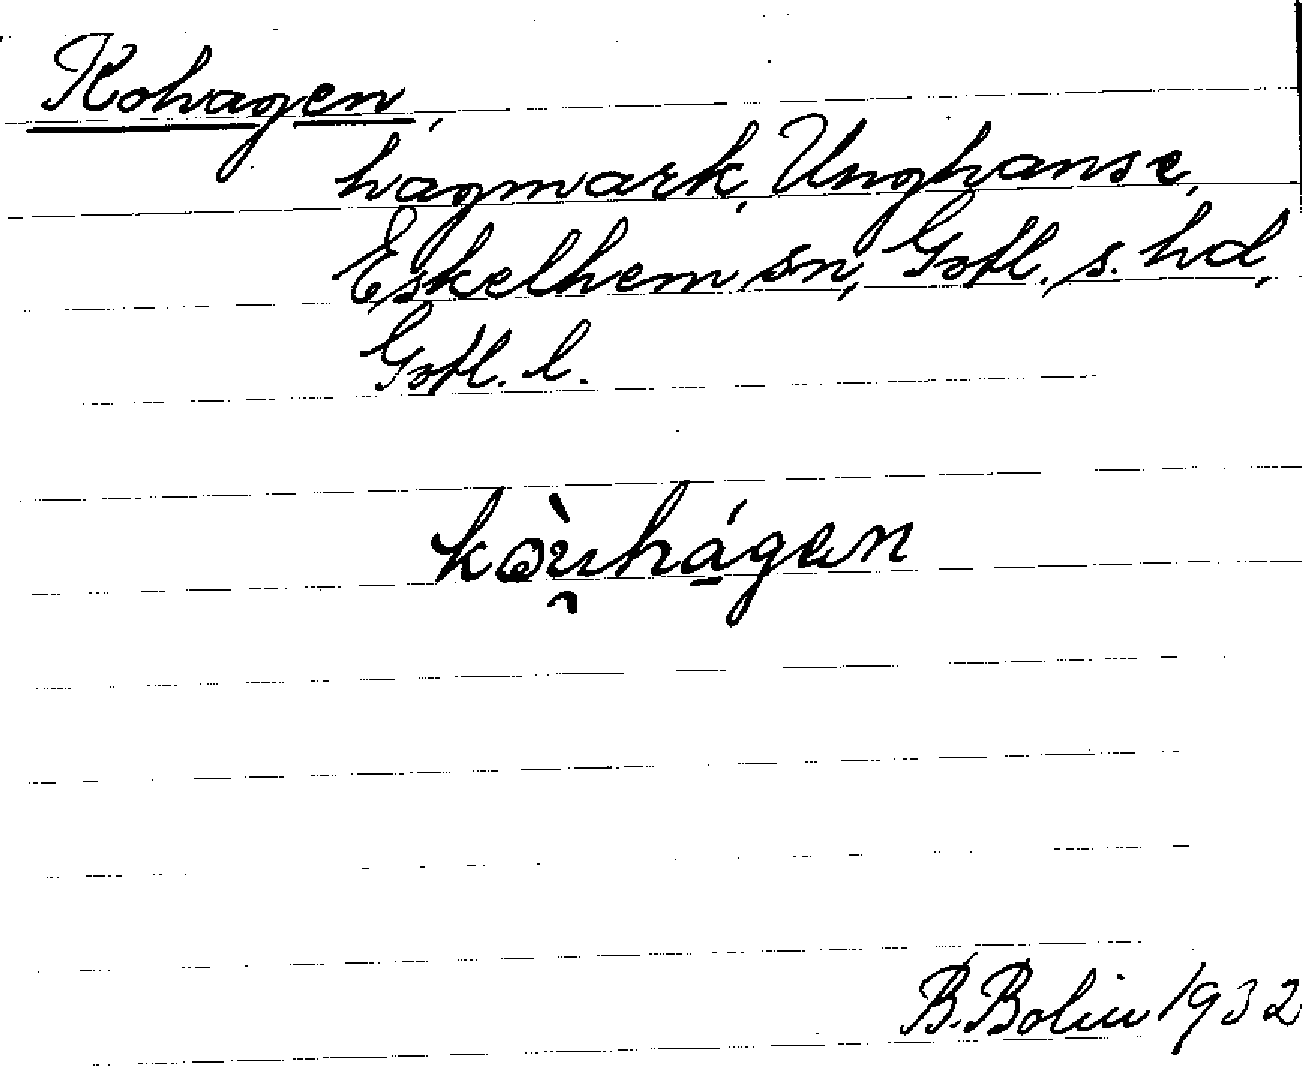 Kohagen,
hagmark, Unghanse,
Eskelhem sn, Gotl. s. hd,
Gotl. l.
B. Bolin 1932